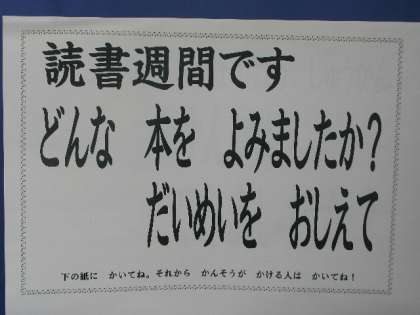 読書週間です
どんな 本を よみましたか?
だいめいを おしえて
下の紙に かいてね。それから かんそうが かける人は かいてね!